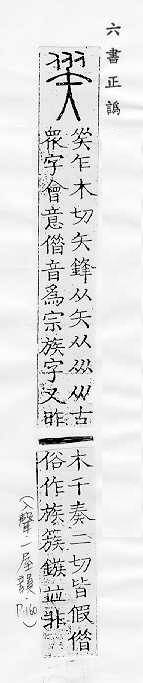 六書正譌
乍木切矢鋒从矢从㐺㐺古
眾字會意借音爲宗族字又昨
木千奏二切皆假借
俗作族簇鏃並非
（入聲一屋韻 P.160）